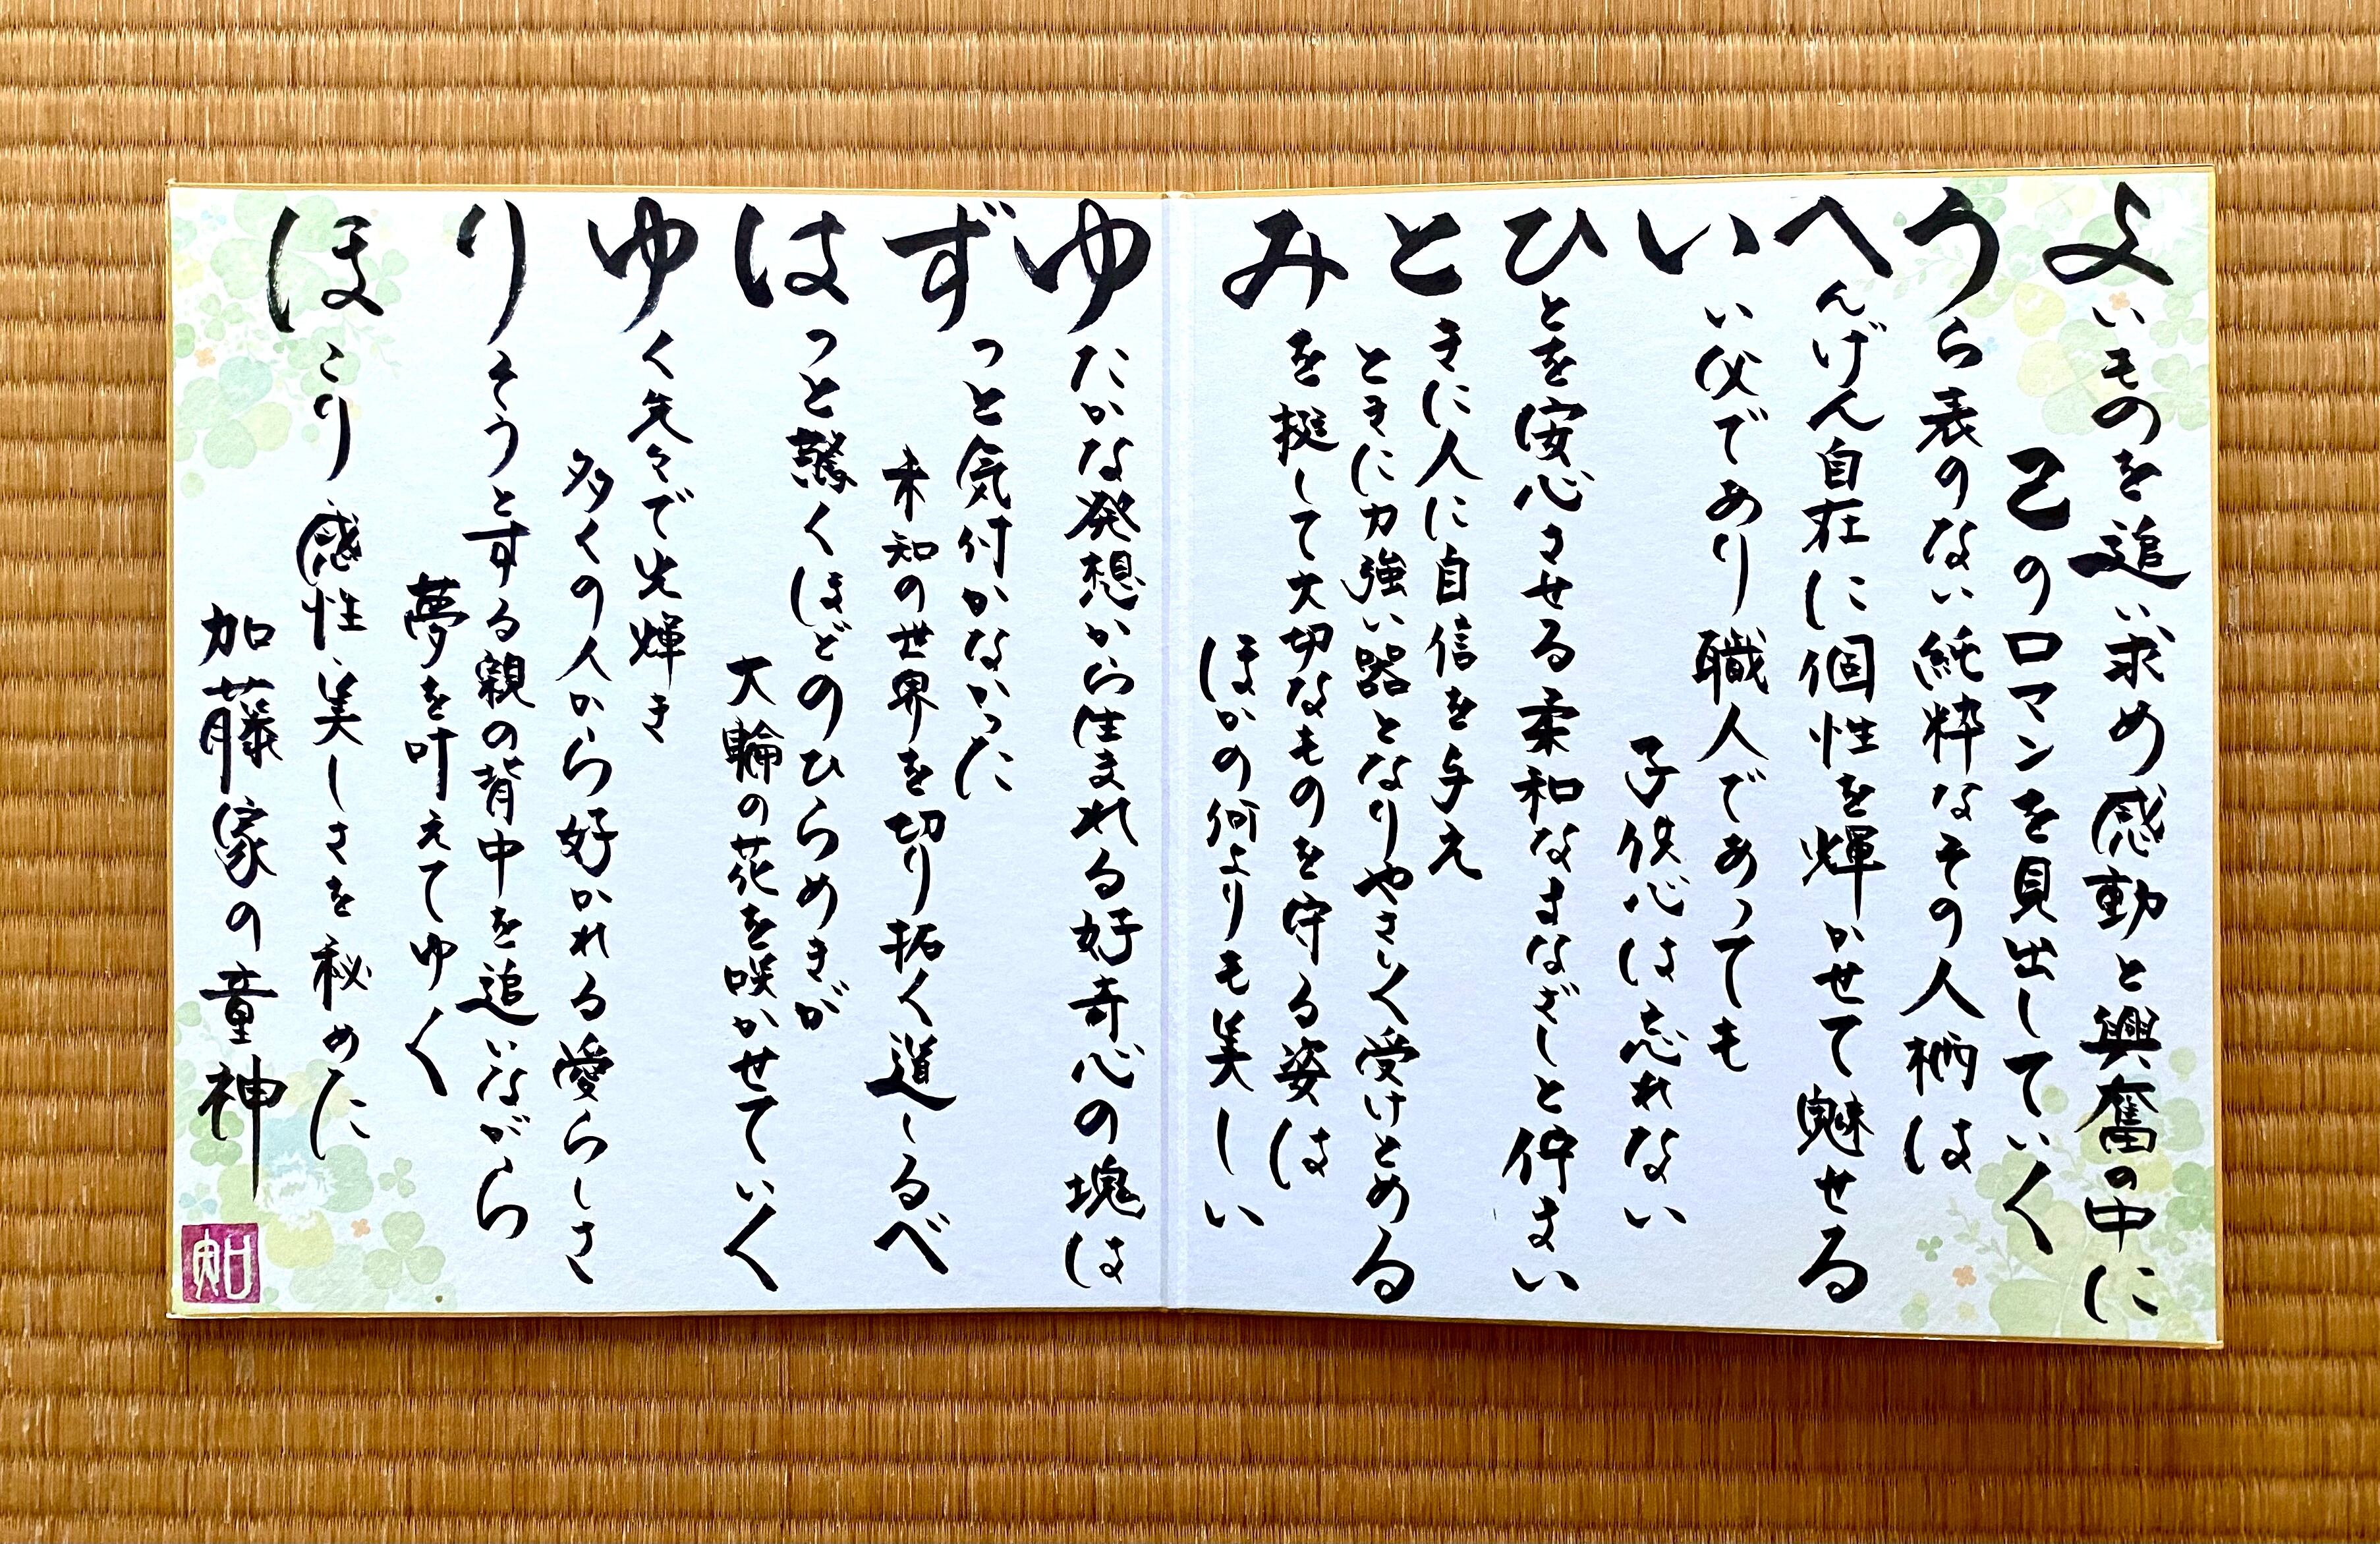 よいものを追い求め感動と興奮の中に
己のロマンを見出していく
うら表のない純粋なその人柄は
へんげん自在に個性を輝かせて魅せる
いい父であり職人であっても
子供心は忘れない
ひとを安心させる柔和なまなざしと佇まい
ときに人に自信を与え
ときに力強い器となりやさしく受けとめる
みを挺して大切なものを守る姿は
ほかの何よりも美しい
ゆたかな発想から生まれる好奇心の塊は
ずっと気付かなかった
未知の世界を切り拓く道しるべ
はっと驚くほどのひらめきが
大輪の花を咲かせていく
ゆく先々で光輝き
多くの人から好かれる愛らしさ
りそうとする親の背中を追いながら
夢を叶えてゆく
ほこり感性美しさを秘めた
加藤家の童神